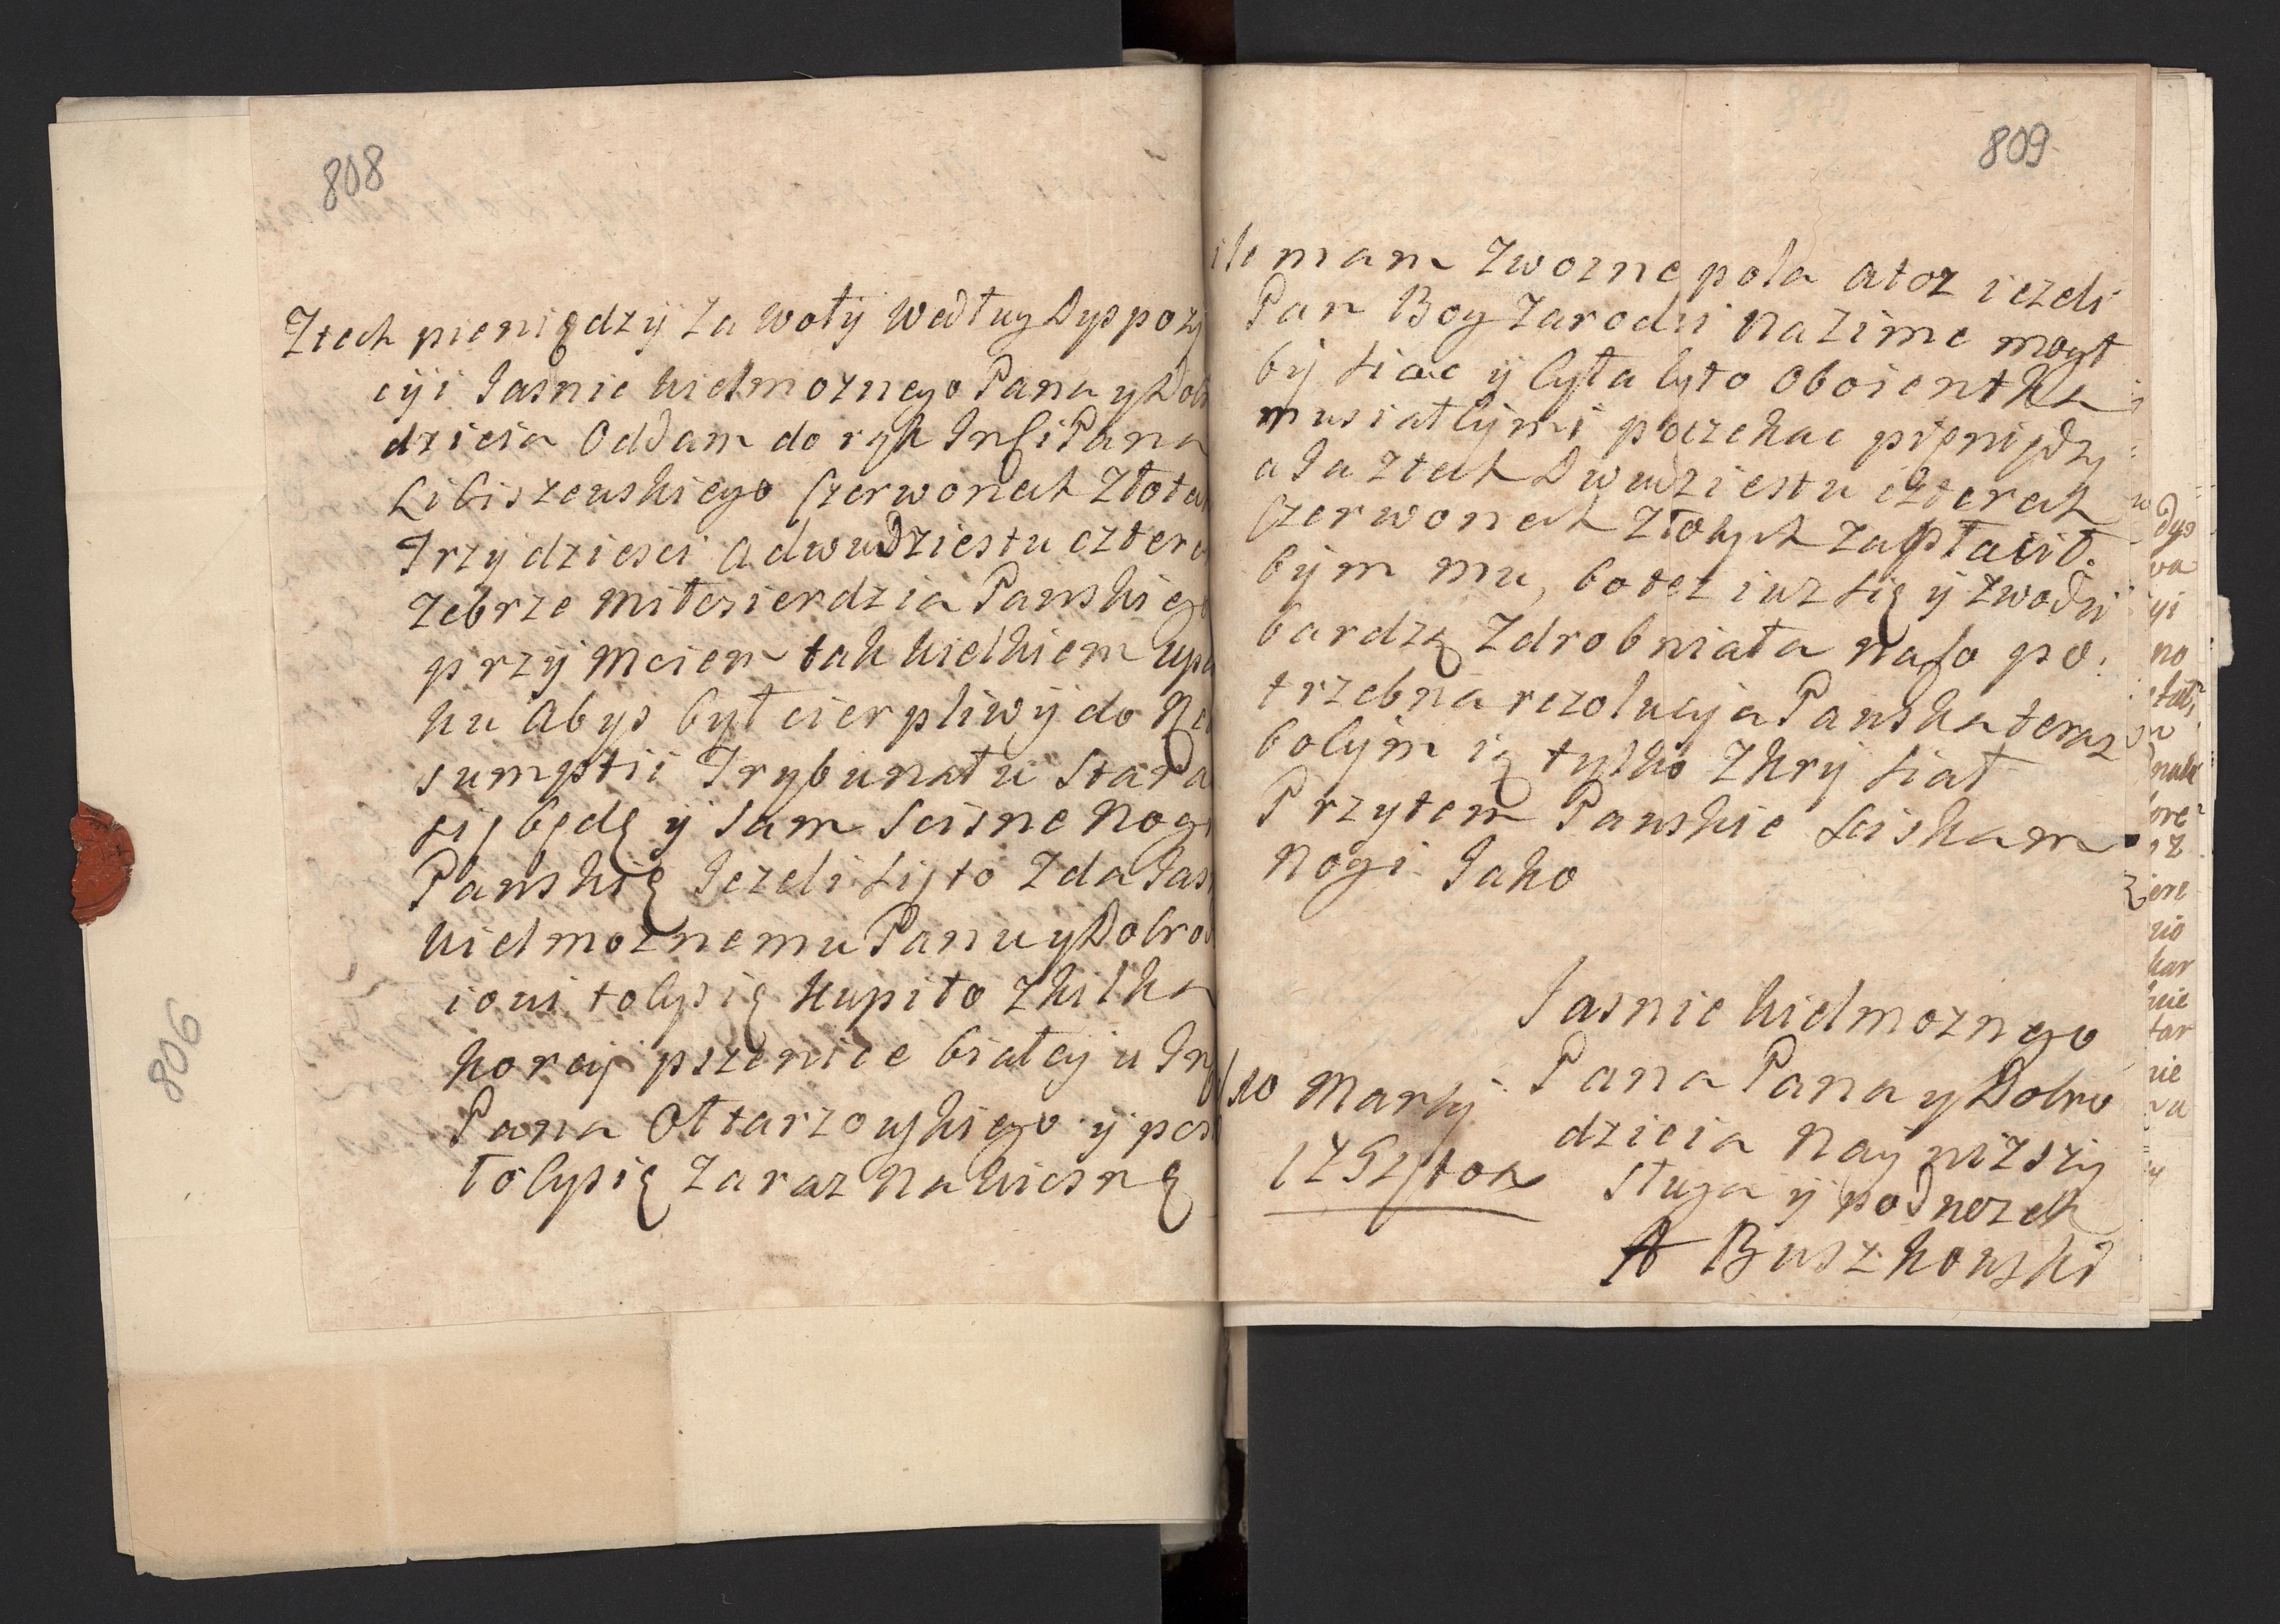 808
Ztech pieniędzÿ za wołÿ według Dyspozÿ
cÿi Jasnie wielmoznego Pana y Dob
dzieia Oddam do ręk Pana
Libiszewskiego Czerwonech Złote
Trzÿdziesci a dwudziestu cztere
zebrze miłosierdzia Panskieg
przÿ moiem tak wielkiem upa
ku abys był cierpliwÿ do Re
sumptii Trybunału stara
się będę ÿ sam scisne nog
Panskię Jezeli się to zda Jas
wielmoznemu Panu y Dobrod
iowi tobysię kupiło zkilka
korcÿ pszenice białeÿ u
Pana Ołtarzowskiego ÿ pos
łobysię zaraz na wiesnę
806
809
ile mam zworne pola atoz iezeli
Pan Bog zarodzi na zime mogł
bÿ siac ÿ byłabyto oboientka
musiałbÿmi poczekac pieniędzy
a Ja ztech Dwudziestu czterech
Czerwonech Złotych zapłacił
bÿm mu, botez iuz się ÿ zwodzi
bardzę zdrobniała na to po
trzebna rezolucyja Panska teraz
bobÿm ię tylko zkrÿ siał
Przytem Panskie sciskam
nogi Jako
Jasnie wielmoznego
Pana Pana y Dobro
dzieia naÿnizszÿ
sługa ÿ podnozek
A Buszkowski
10 Martÿ